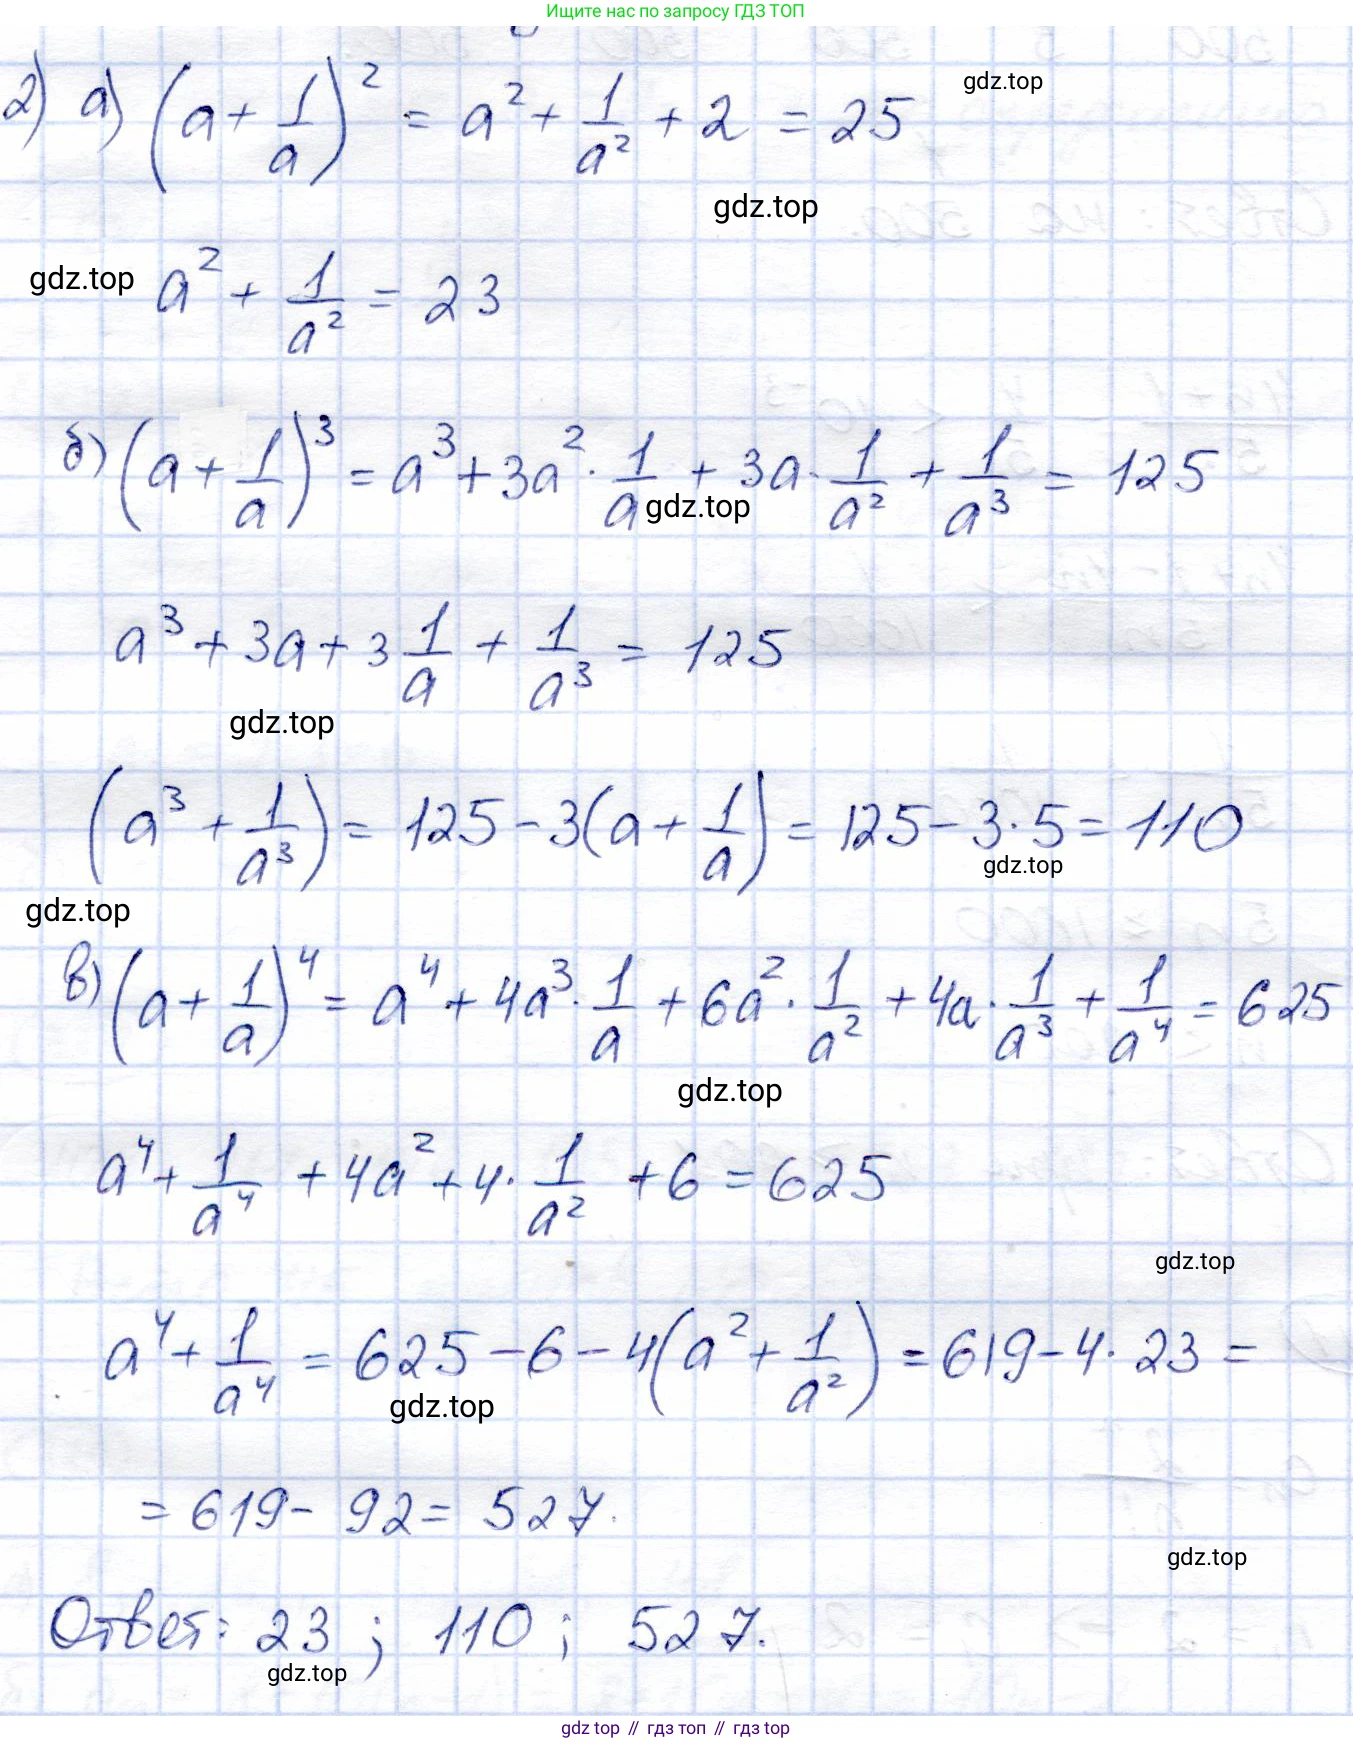 Ищите нас по запросу ГДЗ ТОП
2) а) (a + 1/a)² = a² + 1/a² + 2 = 25
gdz.top
gdz.top
gdz.top
a² + 1/a² = 23
б) (a + 1/a)³ = a³ + 3a² · 1/a + 3a · 1/a² + 1/a³ = 125
gdz.top
a³ + 3a + 3 1/a + 1/a³ = 125
gdz.top
(a³ + 1/a³) = 125 - 3(a + 1/a) = 125 - 3 · 5 = 110
gdz.top
gdz.top
в) (a + 1/a)⁴ = a⁴ + 4a³ · 1/a + 6a² · 1/a² + 4a · 1/a³ + 1/a⁴ = 625
gdz.top
a⁴ + 1/a⁴ + 4a² + 4 · 1/a² + 6 = 625
gdz.top
a⁴ + 1/a⁴ = 625 - 6 - 4(a² + 1/a²) = 619 - 4 · 23 =
gdz.top
= 619 - 92 = 527.
gdz.top
Ответ: 23 ; 110 ; 527.
gdz.top
gdz top // гдз топ // гдз top